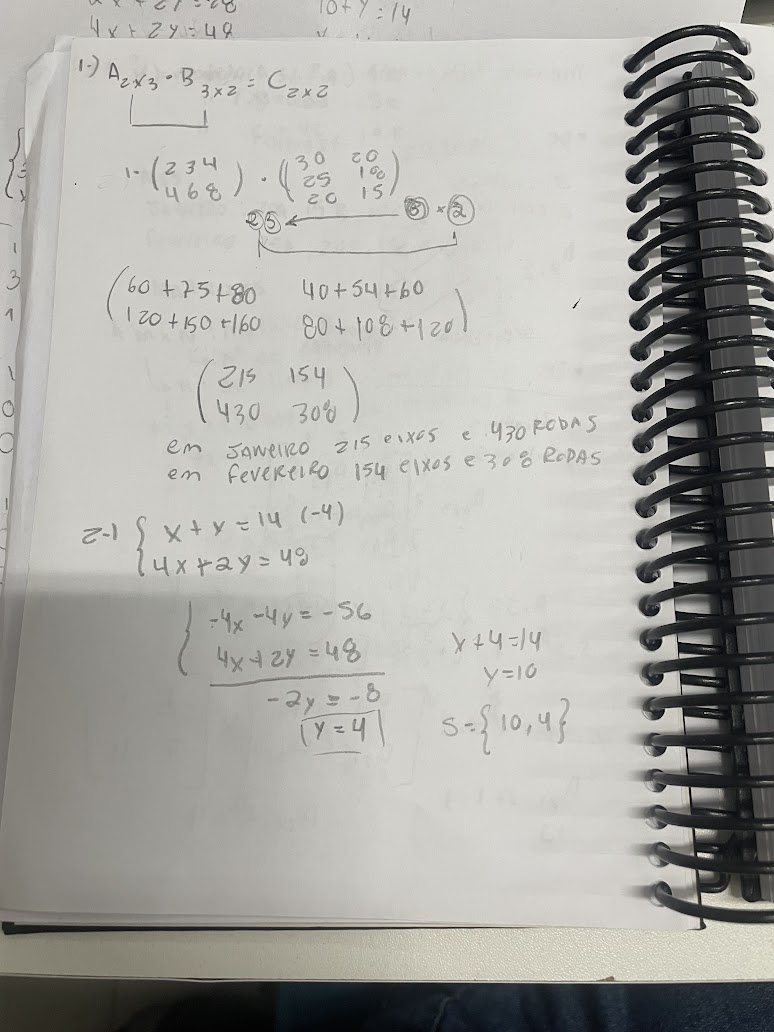 4x + 2y = 48
10 + y = 14
1-) A2x3 · B3x2 = C2x2
1- (2 3 4) · (30 20)
(4 6 8) (25 18)
(20 15)
2 3 ← 3 × 2
(60 + 75 + 80 40 + 54 + 60)
(120 + 150 + 160 80 + 108 + 120)
(215 154)
(430 308)
em JANEIRO 215 eixos e 430 RODAS
em fevereiro 154 eixos e 308 RODAS
2-) { x + y = 14 (-4)
{ 4x + 2y = 48
{ -4x - 4y = -56
4x + 2y = 48
-2y = -8
y = 4
x + 4 = 14
y = 10
S = {10, 4}